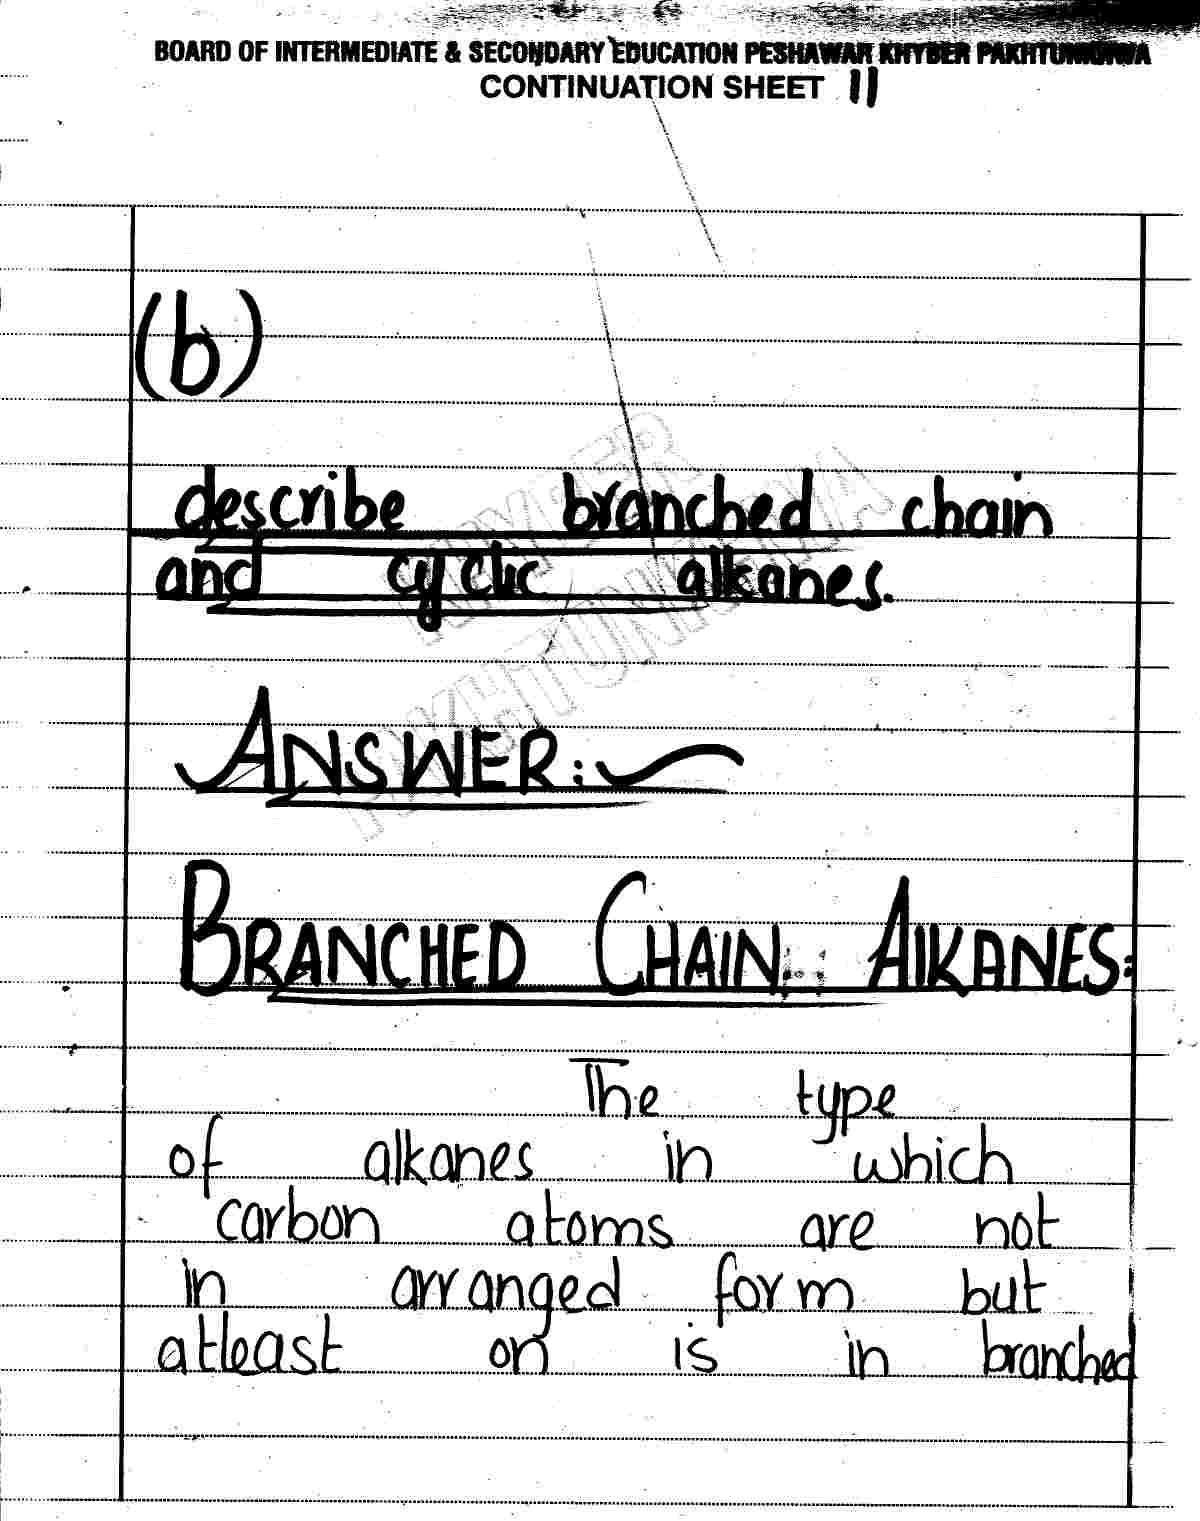 BOARD OF INTERMEDIATE & SECONDARY EDUCATION PESHAWAR KHYBER PAKHTUNKHWA
CONTINUATION SHEET 11
(b)
describe branched chain
and cyclic alkanes.
KHYBER
PAKHTUNKHWA
ANSWER:
BRANCHED CHAIN AlKANES:
The type
of alkanes in which
carbon atoms are not
in arranged form but
atleast on is in branched